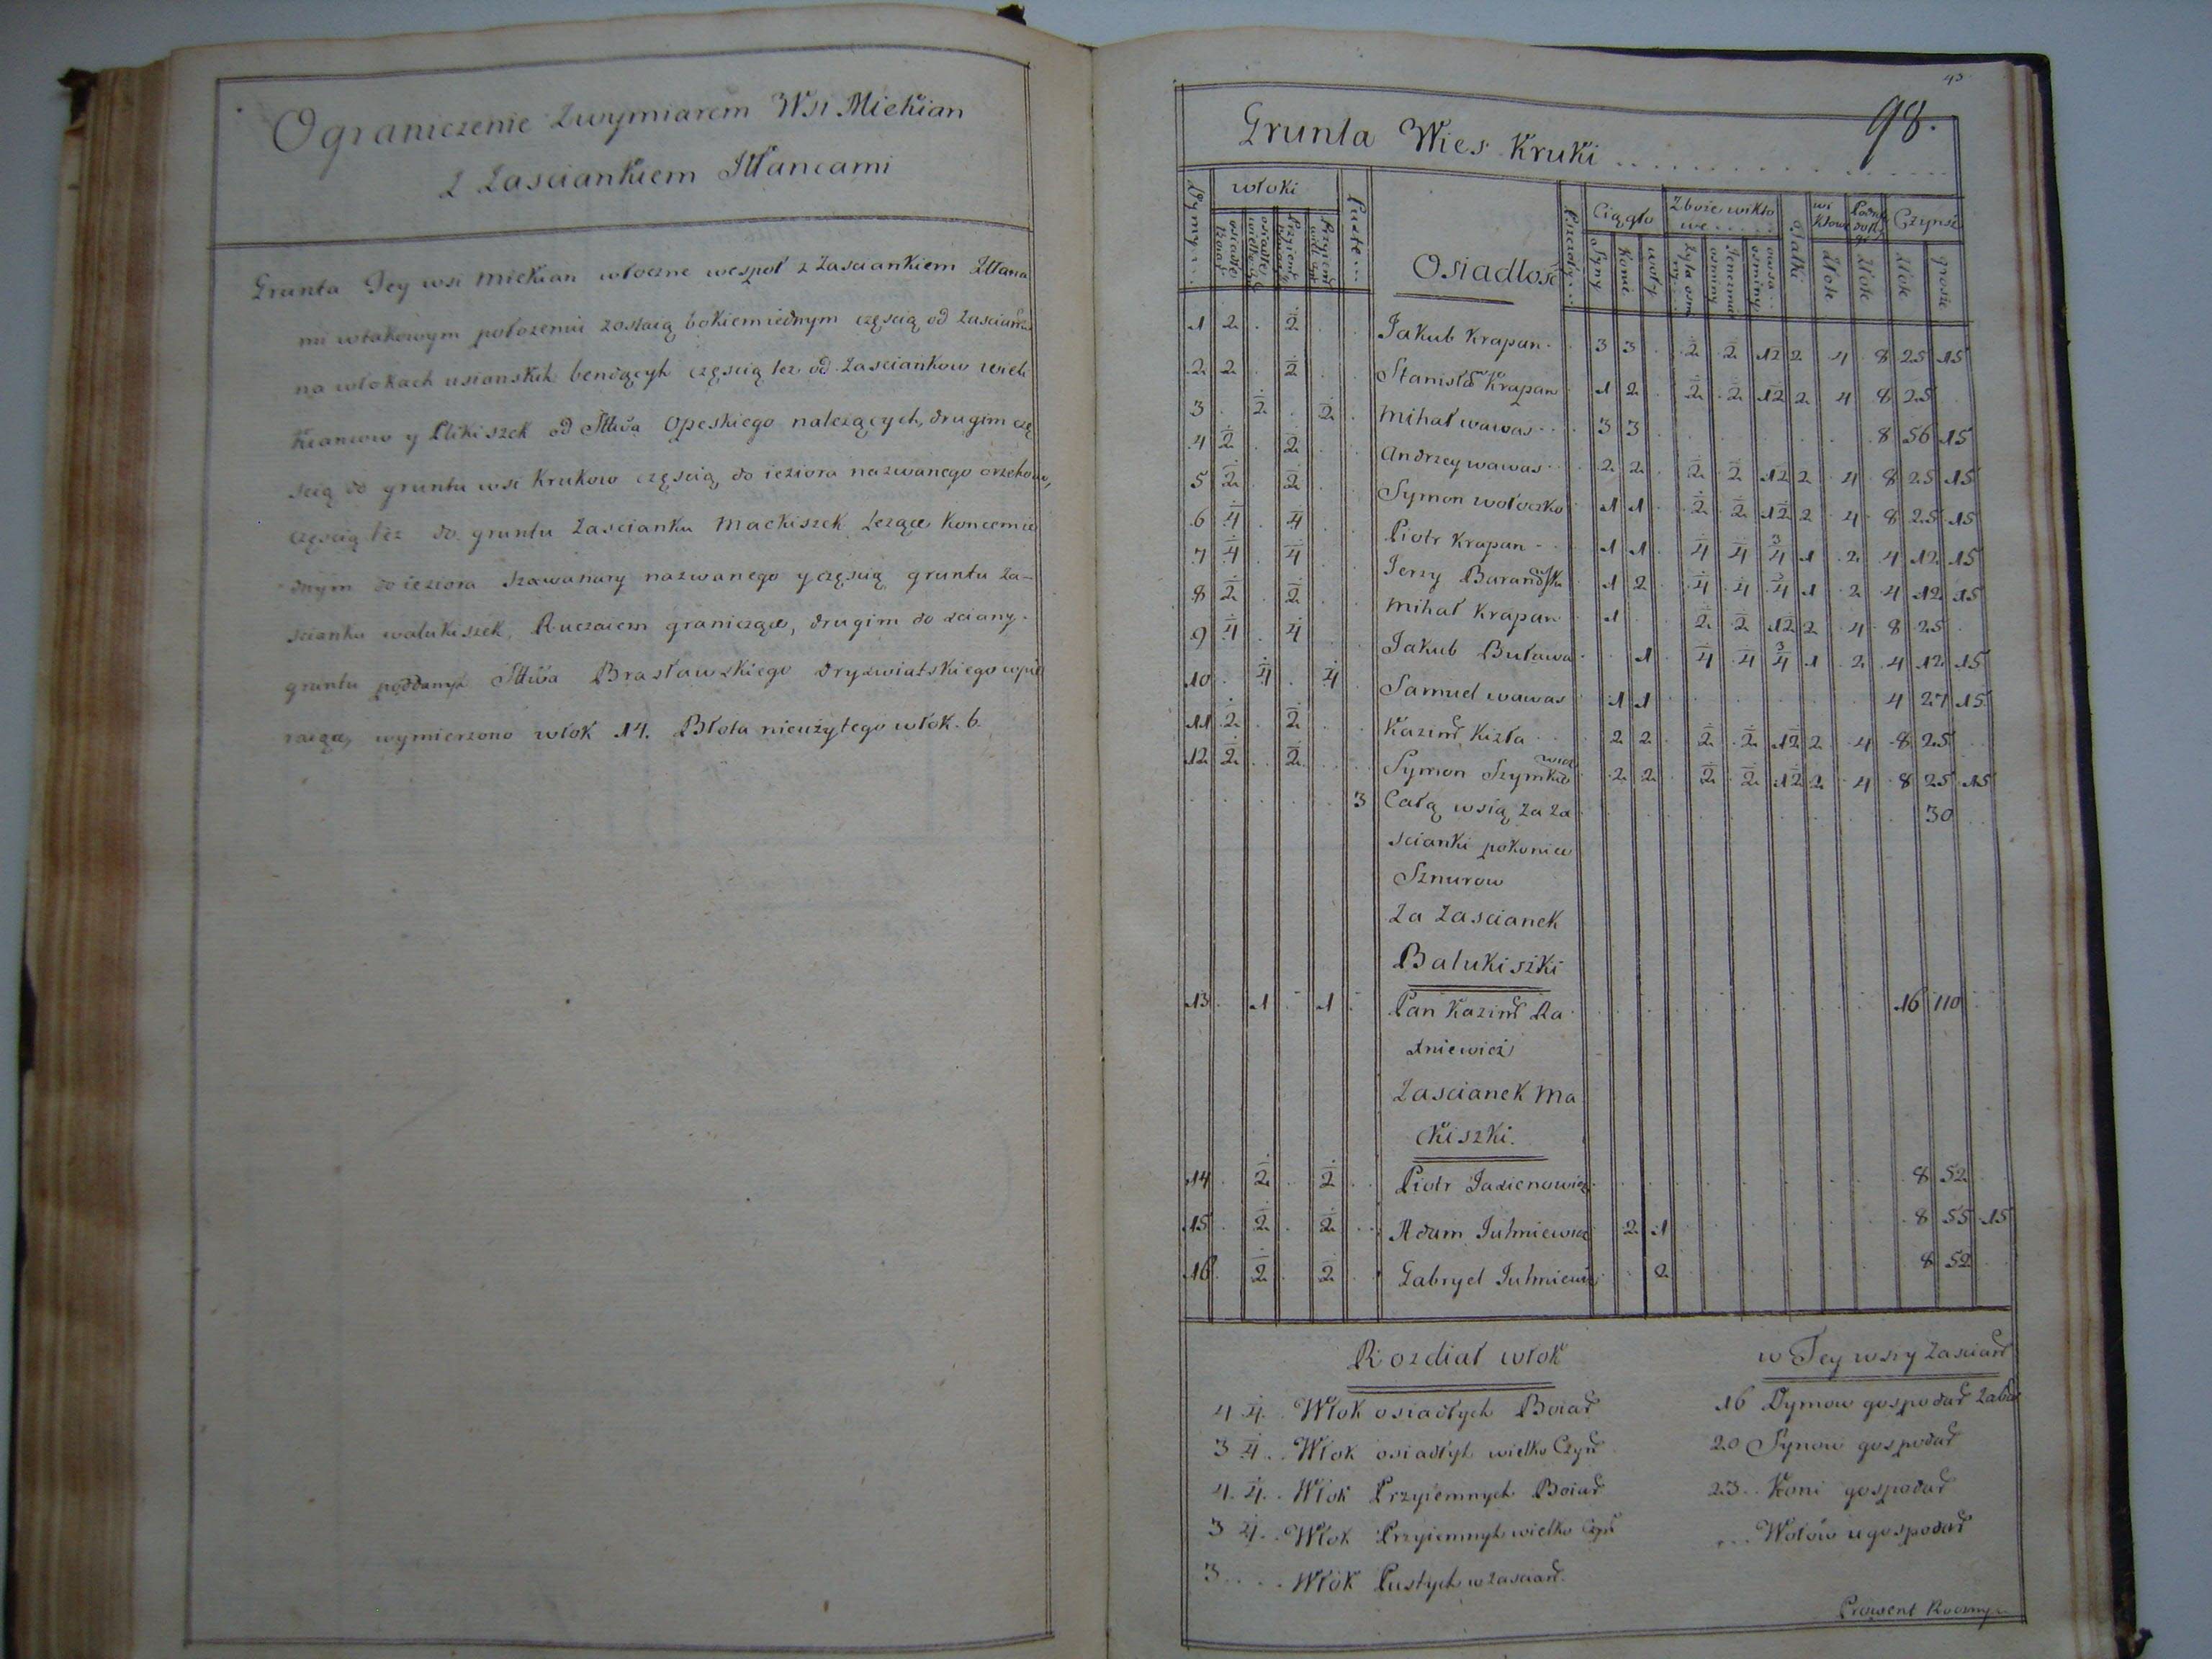 Ograniczenie Zwymiarem Wsi Miekian
z Zasciankiem Ittancami
Grunta Tey wsi Miekian włoczne wespoł z Zasciankiem
mi wtakowym połozeniu zostaią bokiem iednym częscią od
na włokach usianskich bendącyh częscią tez od Zasciankow
y Plikiszek od Sttwa Opeskiego nalezących, drugim czę
scią do gruntu wsi Krukow częscią do ieziora nazwanego
częscią tez do gruntu Zascianku Mackiszek Lezące koncem ie
dnym do ieziora nazwanego y częscią gruntu Za-
scianku walukiszek, Ruczaiem graniczące, drugim do sciany
gruntu poddanych Sttwa Brasławskiego Dryzwiatskiego wpie
raiące, wymierzono włok 14. Błota nieużytego włok. 6.
43
98.
Grunta Wies Kruki
Dymy włoki Puste Osiadłość Ciągło Zboze wikto we Czynsz
Syny Konie woły Złote Złote Złote grosze
1 2 2 Jakub Krapan 3 3 2 2 12 2 4 8 25 15
2 2 2 Stanisław Krapan 1 2 2 2 12 2 4 8 25
3 2 2 Mihał wawas 3 3 8 56 15
4 2 2 Andrzey wawas 2 2 2 2 12 2 4 8 25 15
5 2 2 Symon wołoczko 1 1 2 2 12 2 4 8 25 15
6 4 4 Piotr Krapan 1 1 4 4 3/4 1 2 4 12 15
7 4 4 Jerzy 1 2 4 4 3/4 1 2 4 12 15
8 2 2 Mihał Krapan 1 2 2 12 2 4 8 25
9 4 4 Jakub Buława 1 4 4 3/4 1 2 4 12 15
10 4 4 Samuel wawas 1 1 4 27 15
11 2 2 Kazimr Kizła 2 2 2 2 12 2 4 8 25
12 2 2 Symon Szymkowicz 2 2 2 2 12 2 4 8 25 15
3 Całą wsią za Za 30
scianki pokonice
Sznurow
Za Zascianek
Balukiszki
13 1 1 Pan Kazimr Ra 16 110
dniewicz
Zascianek Ma
ckiszki.
14 2 2 Piotr 8 52
15 2 2 Adam Juhniewicz 2 1 8 55 15
16 2 2 Gabryel Juhniewicz 2 8 52
Rozdiał włok
4 4 Włok osiadłych Boiar
3 4 Włok osiadłyh wielko Czyn
4 4 Włok Przyiemnych Boiar
3 4 Włok Przyiemnyh wielko Czyn
3 Włók Pustych w Zascian
w Tey wsi y Zascian
16 Dymow gospodar
20 Synow gospodar
23 Koni gospodar
Wołów u gospodar
Prowent Roczny